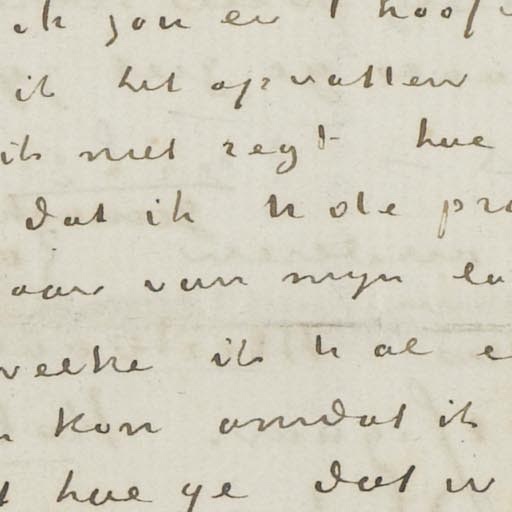 ik zou er 't hoof
ik het opvatten
ik niet regt hoe
dat ik U de pro
aar van mijn
welke ik U al e
kon omdat ik
hoe ge dat